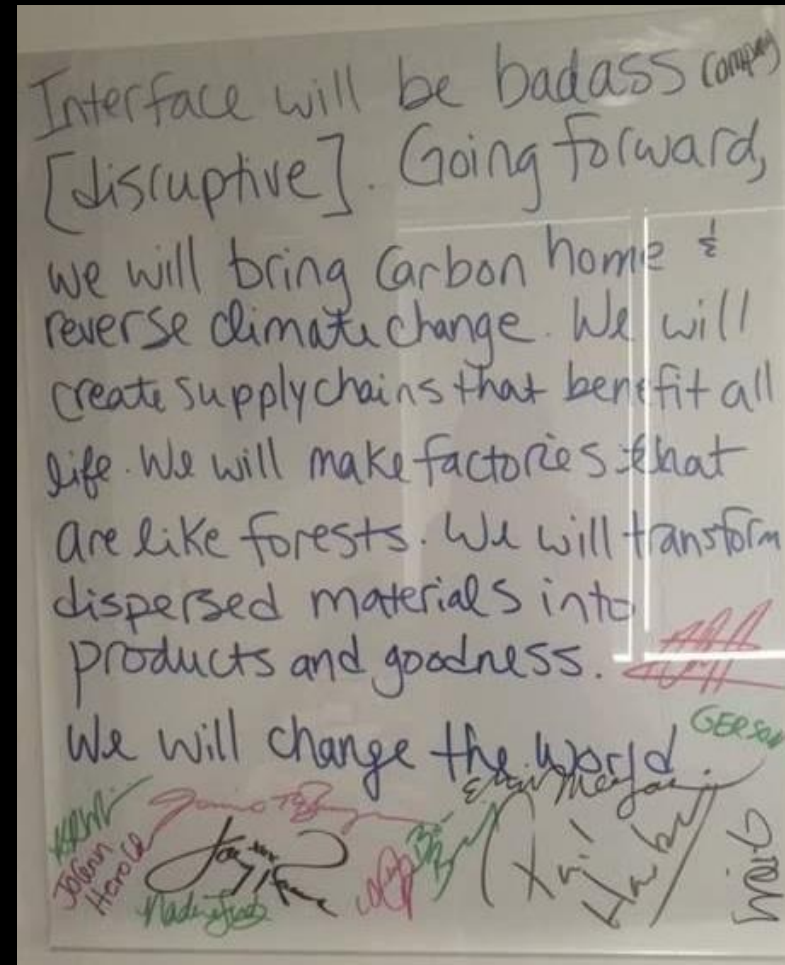 Interface will be badass company
[disruptive]. Going forward,
we will bring carbon home &
reverse climate change. We will
create supply chains that benefit all
life. We will make factories that
are like forests. We will transform
dispersed materials into
products and goodness.
We will change the world.
GERSON
JoAnn
Herold
Paul
Hawken